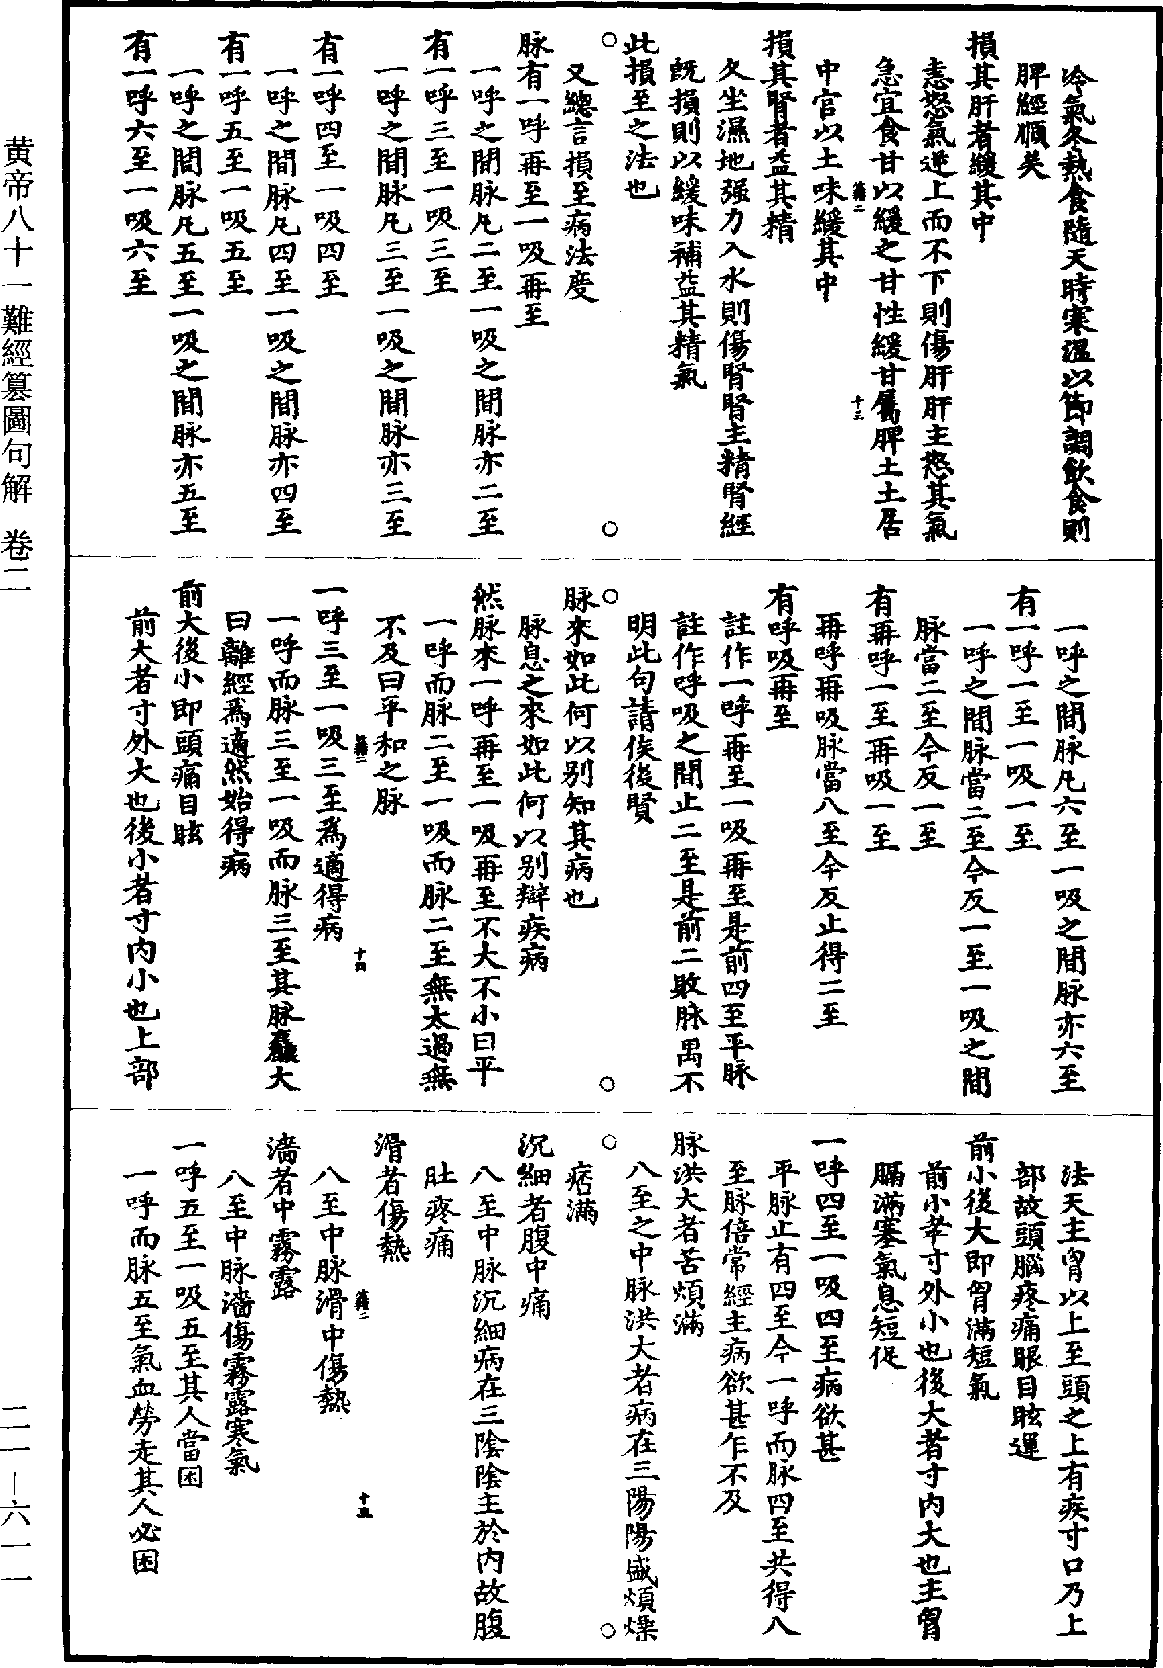 冷氣冬熱食隨天時寒溫以節調飲食則
脾經順矣
損其肝者緩其中
恚怒氣逆上而不下則傷肝肝主怒其氣
急宜食甘以緩之甘性緩甘屬脾土土居
籍二
十三
中官以土味緩其中
損其腎者益其精
久坐濕地强力入水則傷腎腎主精腎經
既損則以緩味補益其精氣
此損至之法也
又總言損至病法度
脉有一呼再至一吸再至
一呼之間脉凡二至一吸之間脉亦二至
有一呼三至一吸三至
一呼之間脉凡三至一吸之間脉亦三至
有一呼四至一吸四至
一呼之間脉凡四至一吸之間脉亦四至
有一呼五至一吸五至
一呼之間脉凡五至一吸之間脉亦五至
有一呼六至一吸六至
一呼之間脉凡六至一吸之間脉亦六至
有一呼一至一吸一至
一呼之間脉當二至今反一至一吸之間
脉當二至今反一至
有再呼一至再吸一至
再呼再吸脉當八至今反止得二至
有呼吸再至
註作一呼再至一吸再至是前四至平脉
註作呼吸之間止二至是前二敗脉愚不
明此句請俟後賢
脉來如此何以別知其病也
脉息之來如此何以別辯疾病
然脉來一呼再至一吸再至不大不小曰平
一呼而脉二至一吸而脉二至無太過無
不及曰平和之脉
籍二
十四
一呼三至一吸三至爲適得病
一呼而脉三至一吸而脉三至其脉麤大
曰離經爲適然始得病
前大後小即頭痛目眩
前大者寸外大也後小者寸内小也上部
法天主胷以上至頭之上有疾寸口乃上
部故頭腦疼痛眼目眩運
前小後大即胷滿短氣
前小者寸外小也後大者寸内大也主胷
膈滿塞氣息短促
一呼四至一吸四至病欲甚
平脉止有四至今一呼而脉四至共得八
至脉倍常經主病欲甚乍不及
脉洪大者苦煩滿
八至之中脉洪大者病在三陽陽盛煩燥
痞滿
沉細者腹中痛
八至中脉沉細病在三陰陰主於内故腹
肚疼痛
滑者傷熱
籍二
十五
八至中脉滑中傷熱
濇者中霧露
八至中脉濇傷霧露寒氣
一呼五至一吸五至其人當困
一呼而脉五至氣血勞走其人必困
黄帝八十一難經纂圖句解 卷二
二一—六一一